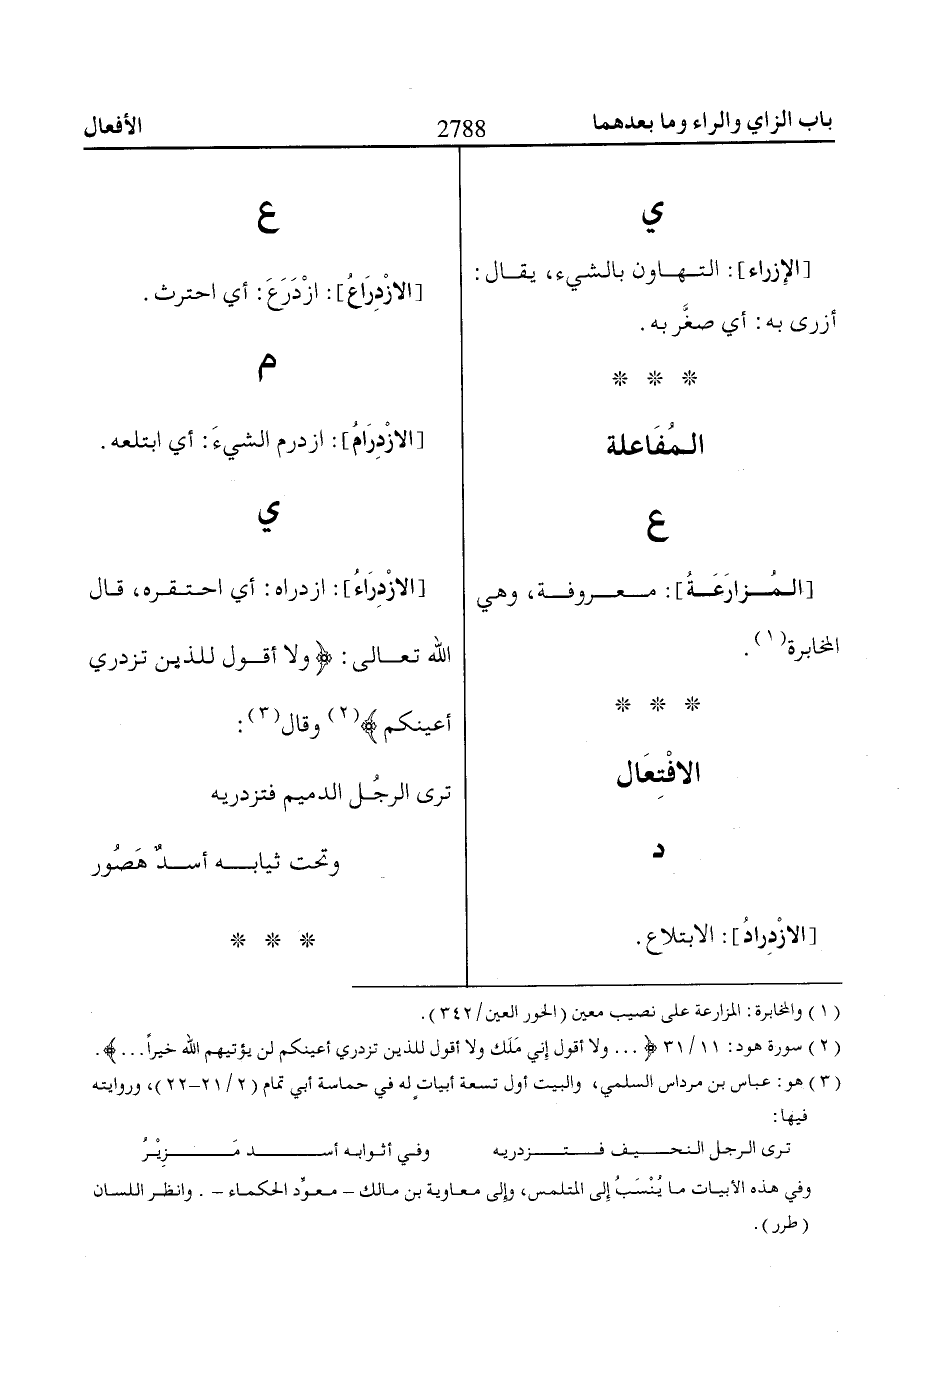 باب الزاي والراء وما بعدهما 2788 الأفعال
ي
[الإزراء]: التهاون بالشيء، يقال:
أزرى به: أي صغَّر به.
* * *
المُفَاعلة
ع
[المُزارَعَةُ]: معروفة، وهي
المخابرة(١).
* * *
الافْتِعَال
د
[الازْدِرادُ]: الابتلاع.
ع
[الازْدِرَاعُ]: ازْدَرَعَ: أي احترث.
م
[الازْدِرَامُ]: ازدرم الشيءَ: أي ابتلعه.
ي
[الازْدِرَاءُ]: ازدراه: أي احتقره، قال
الله تعالى: ﴿ولا أقول للذين تزدري
أعينكم﴾(٢) وقال(٣):
ترى الرجُل الدميم فتزدريه
وتحت ثيابه أسدٌ هَصُور
* * *
(١) والمخابرة: المزارعة على نصيب معين (الحور العين/٣٤٢).
(٢) سورة هود: ٣١/١١ ﴿... ولا أقول إني مَلَك ولا أقول للذين تزدري أعينكم لن يؤتيهم الله خيراً...﴾.
(٣) هو: عباس بن مرداس السلمي، والبيت أول تسعة أبيات له في حماسة أبي تمام (٢/ ٢١–٢٢)، وروايته
فيها:
ترى الرجل النحيف فتزدريه وفي أثوابه أسد مَزِيْرُ
وفي هذه الأبيات ما يُنْسَبُ إلى المتلمس، وإلى معاوية بن مالك – معوِّد الحكماء –. وانظر اللسان
(طرر).